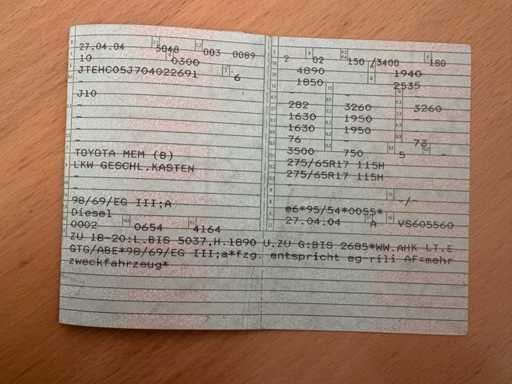 27.04.04 5048 003 0089
10 0300
JTEHC05J704022691 6
-
J10
-
-
-
-
TOYOTA MEM (B)
LKW GESCHL.KASTEN
-
-
98/69/EG III;A
Diesel
0002 0654 4164
2 02 150 /3400 180
4890 1940
1850 2535
- -
282 3260 3260
1630 1950
1630 1950
76 73
3500 750 5 -
275/65R17 115H
275/65R17 115H
-
- -/-
e6*95/54*0055*
27.04.04 A VS605560
ZU 18-20:L.BIS 5037,H.1890 U.ZU G:BIS 2685*WW.AHK LT.E
GTG/ABE*98/69/EG III;a*fzg. entspricht eg-rili AF=mehr
zweckfahrzeug*